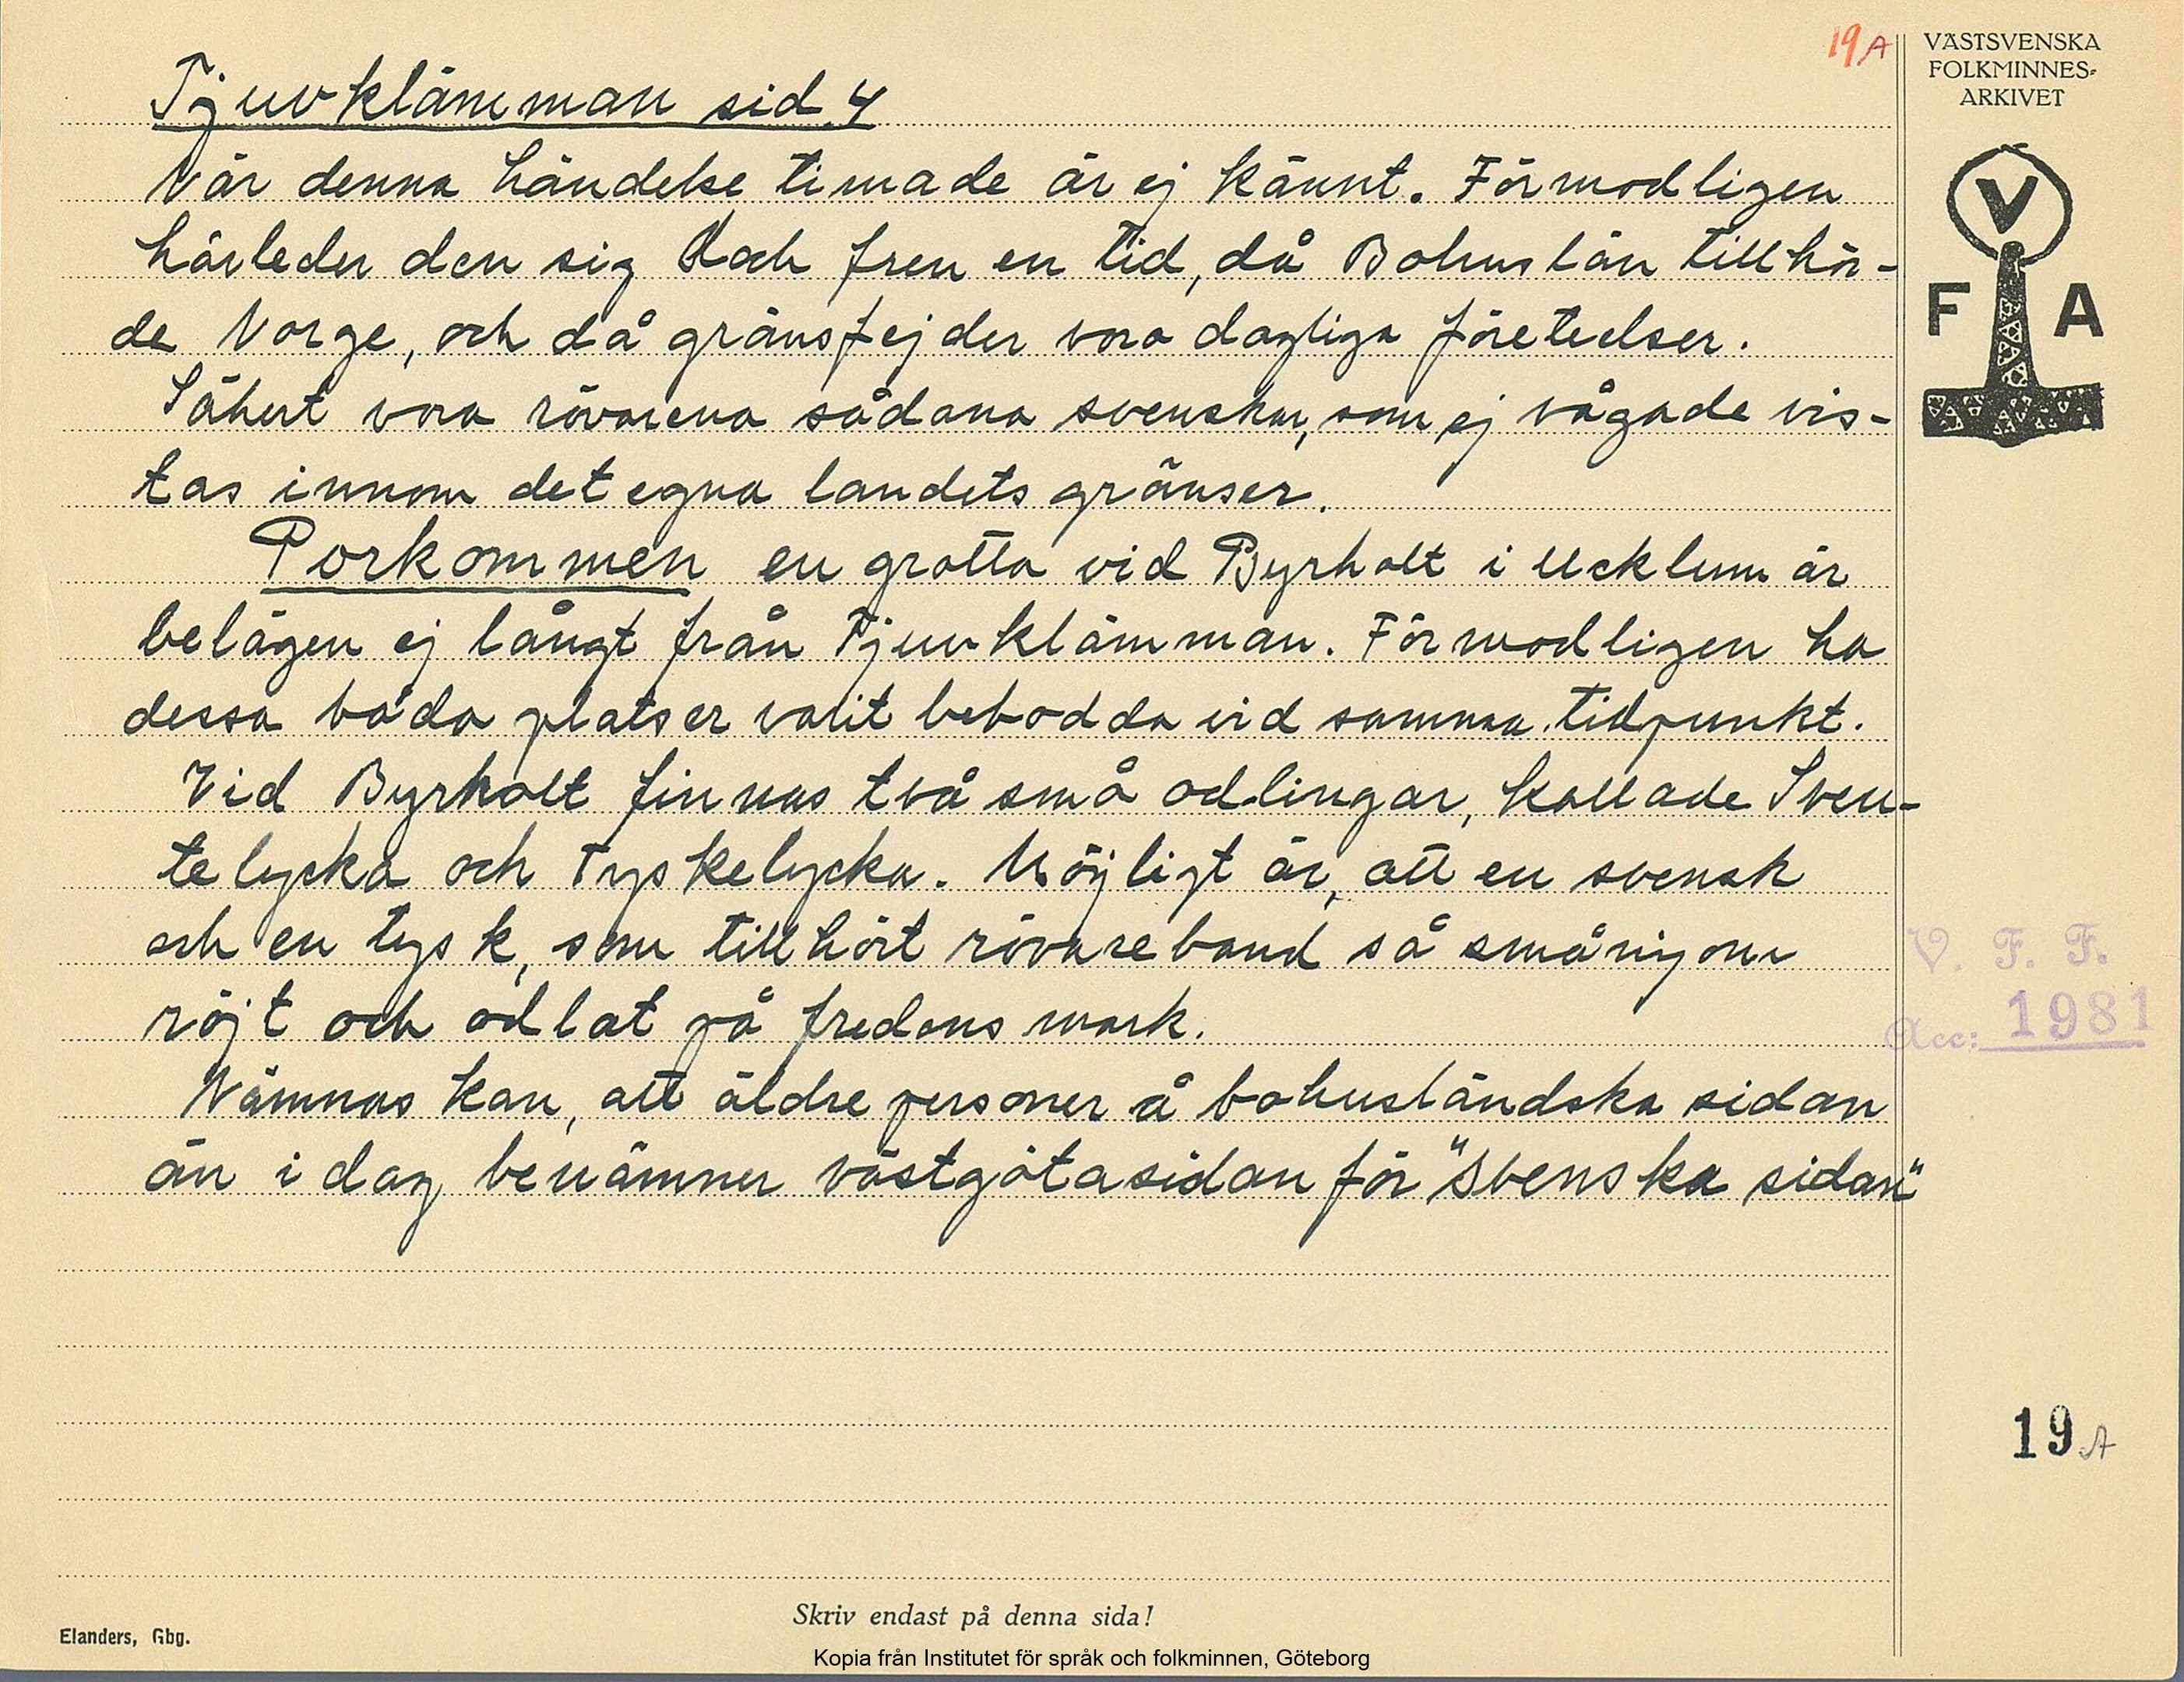 19 A
VÄSTSVENSKA
FOLKMINNES-
ARKIVET
V
F A
Tjuvklämman sid. 4
När denna händelse timade är ej kännt. Förmodligen
härleder den sig från en tid, då Bohuslän tillhör-
de Norge, och då gränsfejder vora dagliga företeelser.
Säkert vora rövarena sådana svenskar, som ej vågade vis-
tas innom det egna landets gränser.
Porkommen en grotta vid Byrholt i Ucklum är
belägen ej långt från Tjuvklämman. Förmodligen ha
dessa båda platser varit bebodda vid samma tidpunkt.
Vid Byrholt finnas två små odlingar, kallade Sven-
telycka och Tyskelycka. Möjligt är, att en svensk
och en tysk, som tillhört rövareband så småningom
röjt och odlat på fredens mark.
Nämnas kan, att äldre personer å bohusländska sidan
än i dag benämner västgötasidan för "Svenska sidan"
V. F. F.
Acc: 1981
19 A
Skriv endast på denna sida!
Elanders, Gbg.
Kopia från Institutet för språk och folkminnen, Göteborg